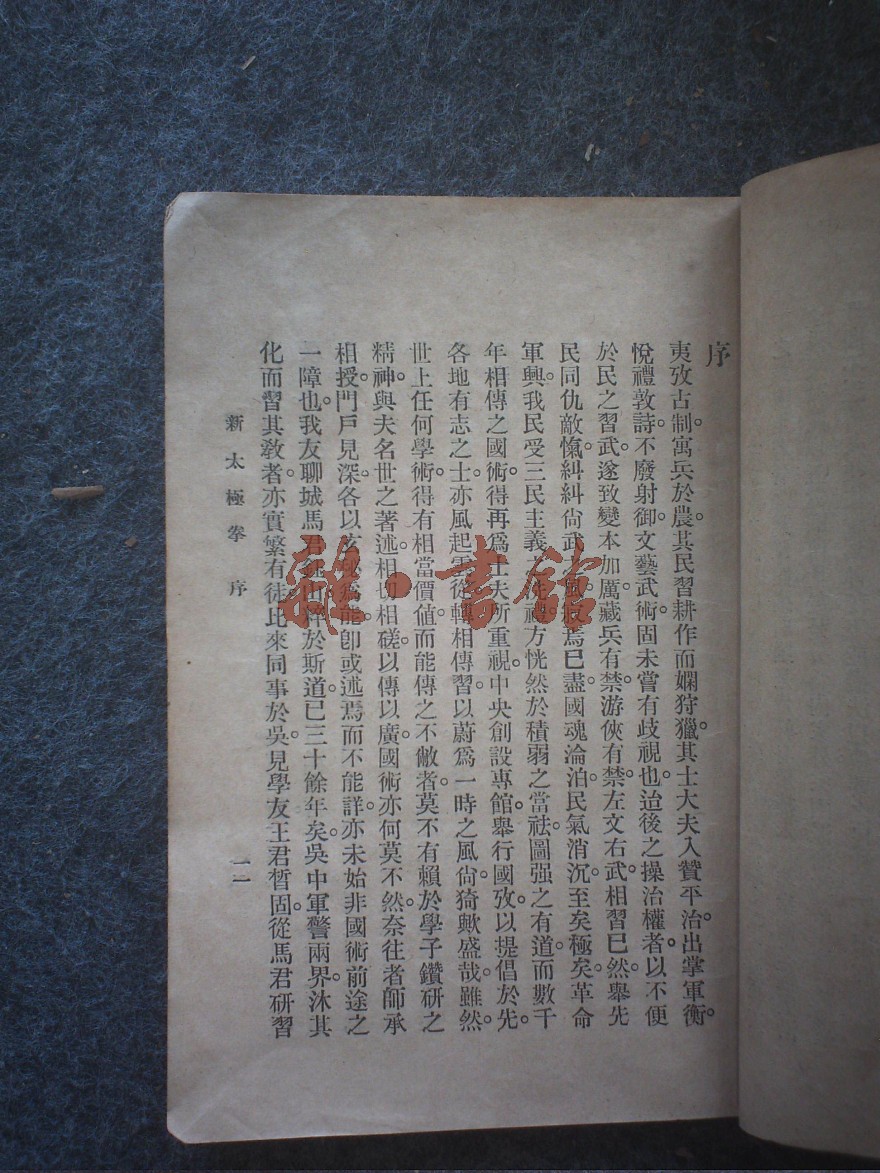 序
夷攷古制。寓兵於農。其民習耕作而嫻狩獵。其士大夫入贊平治。出掌軍衡。
悅禮敦詩。不廢射御。文藝武術。固未嘗有歧視也。迨後之操治權者。以不便
於民之習武。遂致變本加厲。藏兵有禁。游俠有禁。左文右武。相習已然。舉先
民同仇敵愾。糾糾尙武之風。焉已盡。國魂淪泊。民氣消沉。至矣極矣。革命
軍興。我民受三民主義之洗禮。方恍然於積弱之當祛。圖强之有道。而數千
年相傳之國術。得再爲士夫所重視。中央創設專館。舉行國攷。以提倡於先。
各地有志之士。亦風起雲從。轉相傳習。以蔚爲一時之風尙。猗歟盛哉。雖然。
世上任何學術。得有相當價値。而能傳之不敝者。莫不有賴於學子鑽研之
精神。與夫名世之著述。相切相磋。以傳以廣。國術亦何莫不然。奈往者師承
相授。門戶見深。各以玄秘爲能。卽或述焉而不能詳。亦未始非國術前途之
一障也。我友聊城馬君山粹於斯道。已三十餘年矣。吳中軍警兩界。沐其
化而習其敎者。亦實繁有徒。比來同事於吳。見學友王君晳固。從馬君研習
新太極拳 序
二
雜·書館